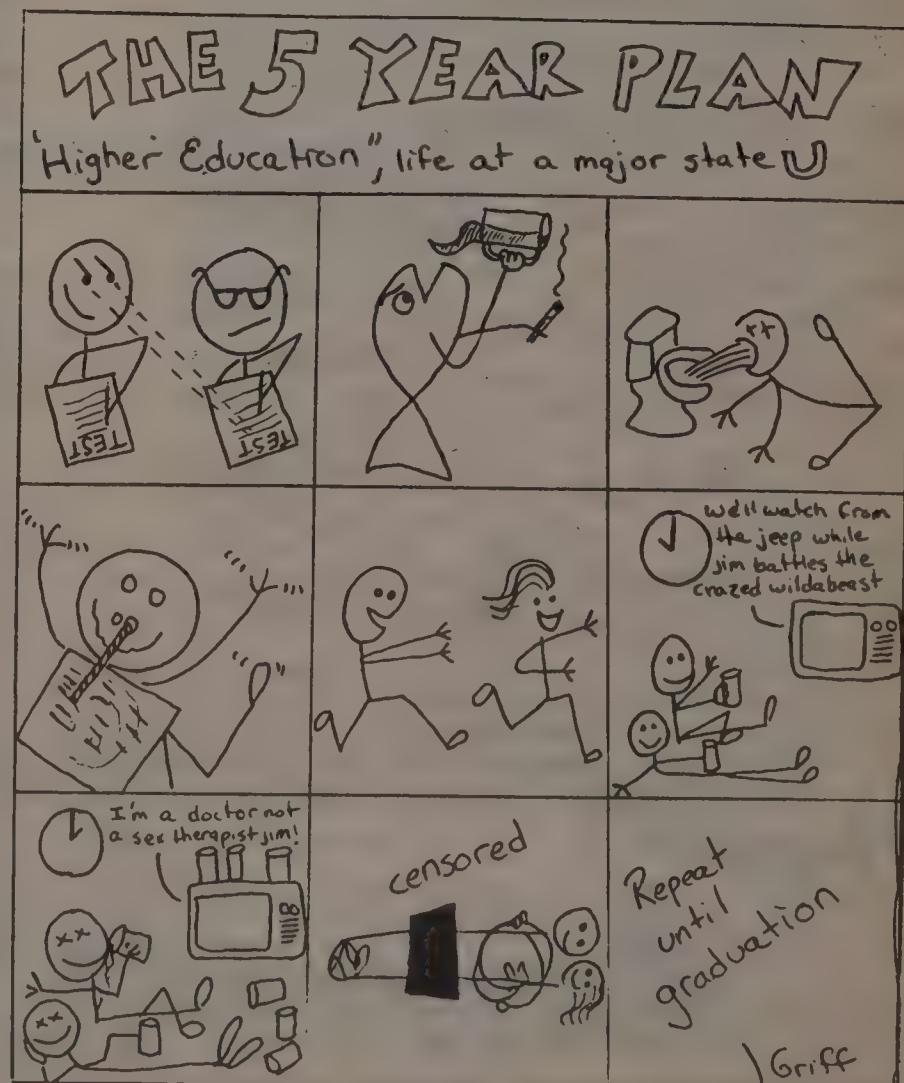 THE 5 YEAR PLAN
'Higher Education", life at a major state U
TEST
TEST
we'll watch from
the jeep while
jim battles the
crazed wildabeast
I'm a doctor not
a sex therapist jim!
censored
Repeat
until
graduation
Griff